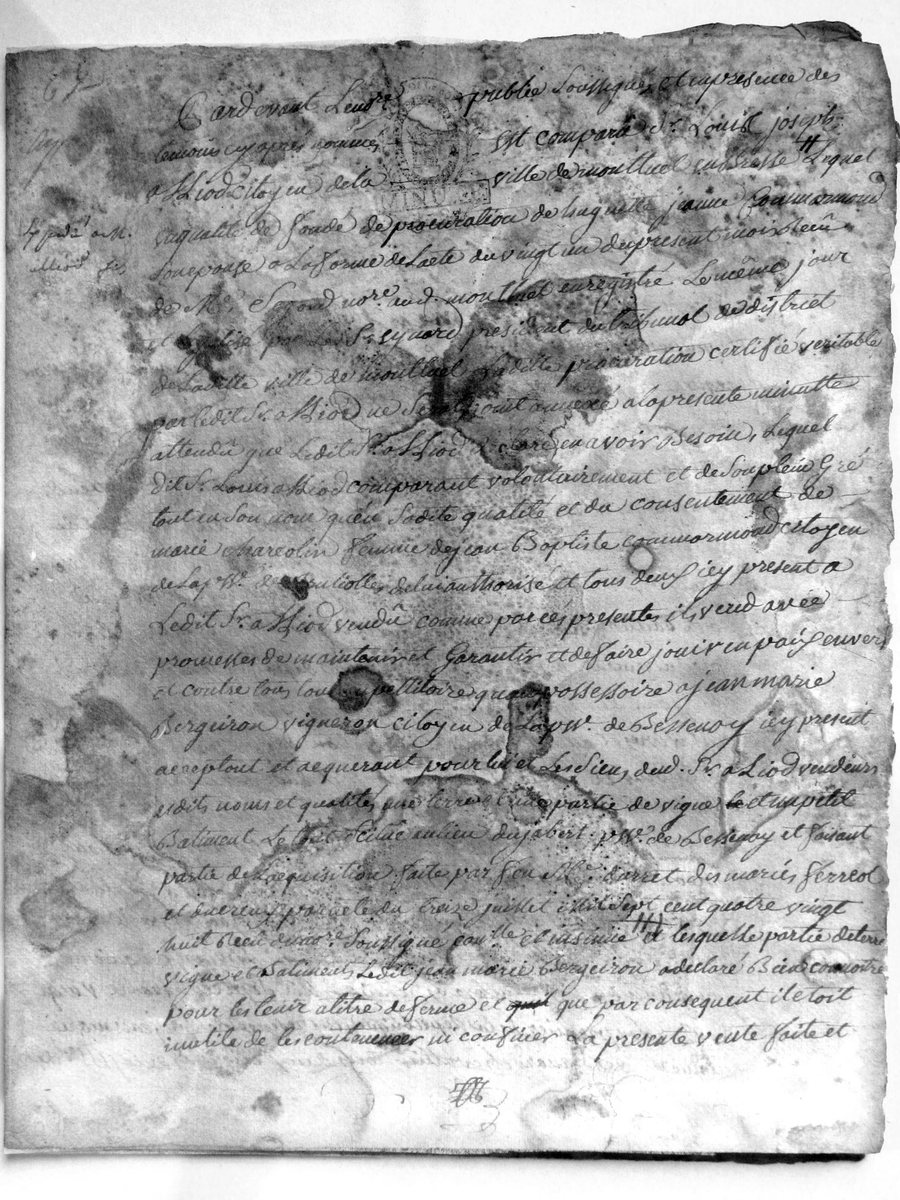 Pardevant Le no.re public Soussigné, et en présence des
temoins cy après nommés est comparû S.r Louis joseph
alliod Citoyen de la ville de montluel en Bresse // Lequel
en qualité de fondé de procuration de huguette jeanne Commarmond
Son epouse a La forme de L'acte du vingt un du present mois Recû
de M.e no.re aud. montluel enregistré Le même jour
et Legalisé par Le S.r president du tribunal de district
de Ladite ville de montluel Ladite procuration certifié veritable
par Ledit S.r alliod ne Sera point annexé a la presente minutte
attendû que Ledit S.r alliod declare en avoir Besoin, Lequel
dit S.r Louis alliod comparant volontairement et de Son plein Gré
tout en Son nom qu'en Sadite qualité et du consentement de
marie femme de jean Baptiste commarmond citoyen
de La p.sse de de lui authorisé et tous deux icy present a
Ledit S.r alliod vendû comme par ces presentes il vend avec
promesses de maintenir et Garantir et de faire jouir en paix envers
et contre tous tout petitoire que possessoire a jean marie
Bergeiron vigneron citoyen de La p.sse de Bessenay icy present
acceptant et acquerant pour lui et Les Siens dud. S.r alliod vendeur
esdits noms et qualités une terre et une partie de vigne et un petit
Batiment Le tout Situé au lieu du jabert p.sse de Bessenay et faisant
partie de L'acquisition faite par feu M.r des mariés ferreol
et par acte du treize juillet mil Sept cent quatre vingt
huit Recû du no.re Soussigné con.llé et insinué et lesquelle partie de terre
vigne et Batiment Ledit jean marie Bergeiron a declaré Bien connoitre
pour les tenir a titre de ferme et que par consequent il etoit
inutile de les contenancer ni confiner La presente vente faite et